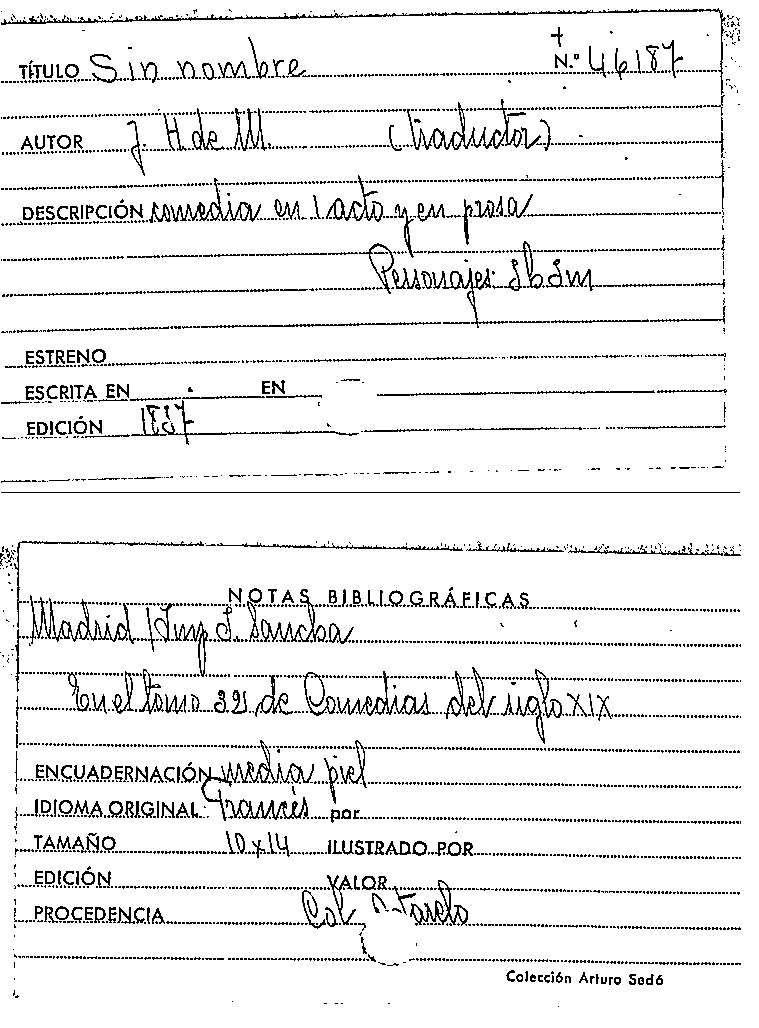 TÍTULO Sin nombre N.º 46187
AUTOR J. H. de M. (traductor)
DESCRIPCIÓN comedia en 1 acto y en prosa
Personajes:
ESTRENO
ESCRITA EN EN
EDICIÓN 1837
NOTAS BIBLIOGRÁFICAS
Madrid Imp I. Sancha
En el tomo 32 de Comedias del siglo XIX
ENCUADERNACIÓN media piel
IDIOMA ORIGINAL Francés por
TAMAÑO 10x14 ILUSTRADO POR
EDICIÓN VALOR
PROCEDENCIA Col
Colección Arturo Sedó